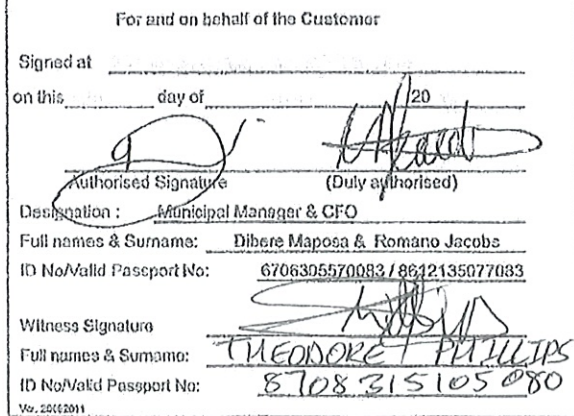 For and on behalf of the Customer
Signed at
on this day of /20
Authorised Signature (Duly authorised)
Designation : Municipal Manager & CFO
Full names & Surname: Dibere Maposa & Romano Jacobs
ID No/Valid Passport No: 6706305570083 / 8612135077083
Witness Signature
Full names & Surname: THEODORE PHILLIPS
ID No/Valid Passport No: 8708315105080